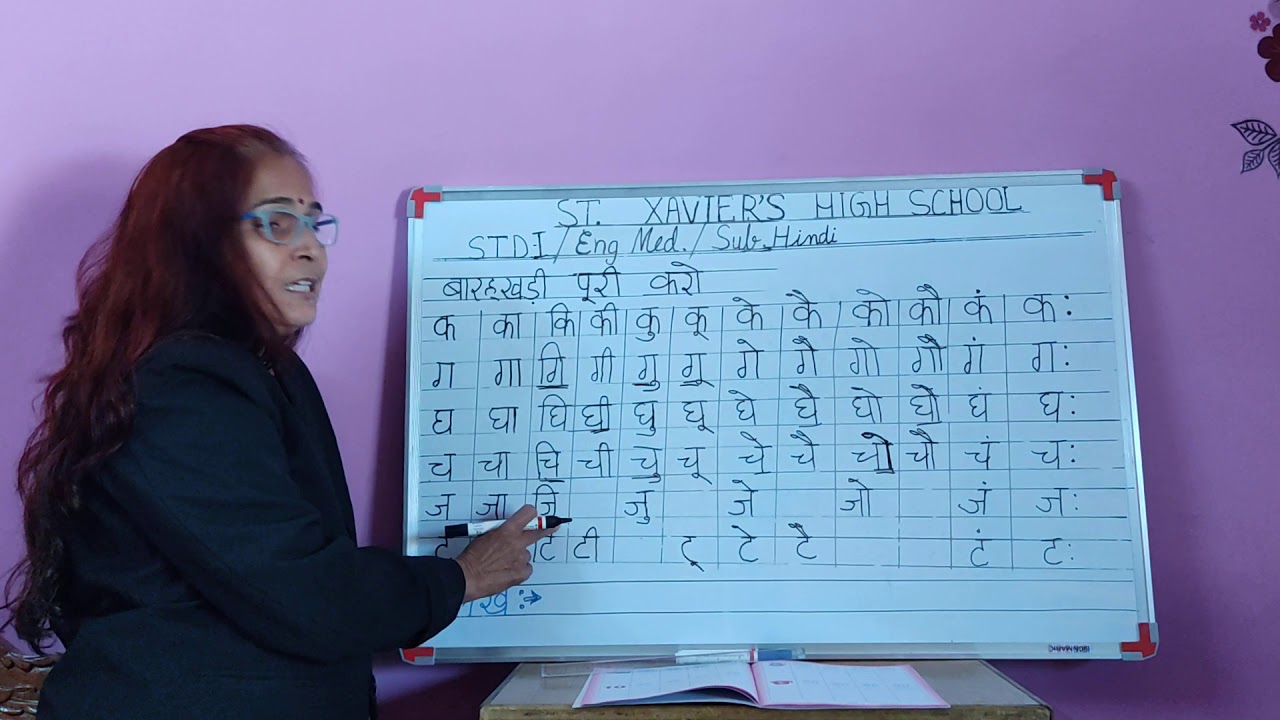 ST. XAVIER'S HIGH SCHOOL
STD I / Eng Med. / Sub. Hindi
बारहखड़ी पूरी करो
क का कि की कु कू के कै को कौ कं कः
ग गा गि गी गु गू गे गै गो गौ गं गः
घ घा घि घी घु घू घे घै घो घौ घं घः
च चा चि ची चु चू चे चै चो चौ चं चः
ज जा जि जु जे जो जं जः
ट टि टी टू टे टै टं टः